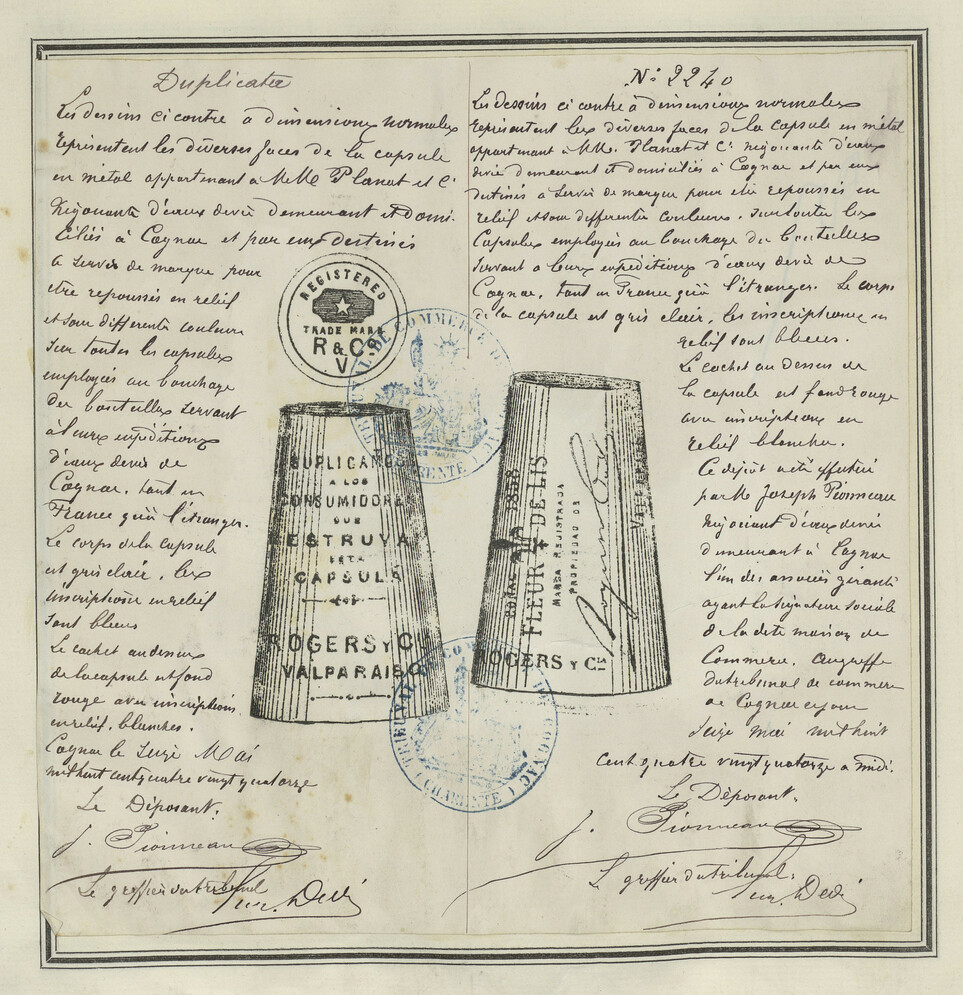 Duplicata
Les dessins ci contre à dimensions normales
représentent les diverses faces de la capsule
en métal appartenant à MM. Planat et Cie
Négociants d'eaux devie demeurant et domi-
ciliés à Cognac et par eux destinés
a servir de marque pour
être repoussés en relief
et sous différentes couleurs
sur toutes les capsules
employées au bouchage
des bouteilles servant
à leurs expéditions
d'eaux devie de
Cognac, tant en
France qu'à l'étranger.
Le corps de la capsule
est gris clair, les
inscriptions en relief
sont bleues
Le cachet au dessus
de la capsule est fond
rouge avec inscriptions
en relief, blanches.
Cognac le Seize Mai
mil huit cent quatre vingt quatorze
Le Déposant.
J. Pionneau
Le greffier du tribunal
REGISTERED
TRADE MARK
R & Cos
V
SUPLICAMOS
A LOS
CONSUMIDORES
QUE
DESTRUYAN
ESTA
CAPSULA
ROGERS Y Ca
VALPARAISO
1858
FLEUR DE LIS
MARCA REGISTRADA
PROPIEDAD DE
ROGERS Y Cia
TRIBUNAL DE COMMERCE DE COGNAC
( CHARENTE )
TRIBUNAL DE COMMERCE DE COGNAC
( CHARENTE )
No 2240
Les dessins ci contre à dimensions normales
représentent les diverses faces de la capsule en métal
appartenant à MM. Planat et Cie Négociants d'eaux
devie demeurant et domiciliés à Cognac et par eux
destinés a servir de marque pour être repoussés en
relief et sous différentes couleurs, sur toutes les
Capsules employées au bouchage des bouteilles
servant a leurs expéditions d'eaux devie de
Cognac, tant en France qu'à l'étranger. Le corps
de la capsule est gris clair, les inscriptions en
relief sont bleues.
Le cachet au dessus de
la capsule est fond rouge
avec inscriptions en
relief blanches.
Ce dépôt a été effectué
par M. Joseph Pionneau
Négociant d'eaux devie
demeurant à Cognac
l'un des associés gérants
ayant la signature sociale
de la dite maison de
Commerce, au greffe
du tribunal de commerce
de Cognac ce jour
seize mai mil huit
cent quatre vingt quatorze a midi.
Le Déposant.
J. Pionneau
Le greffier du tribunal